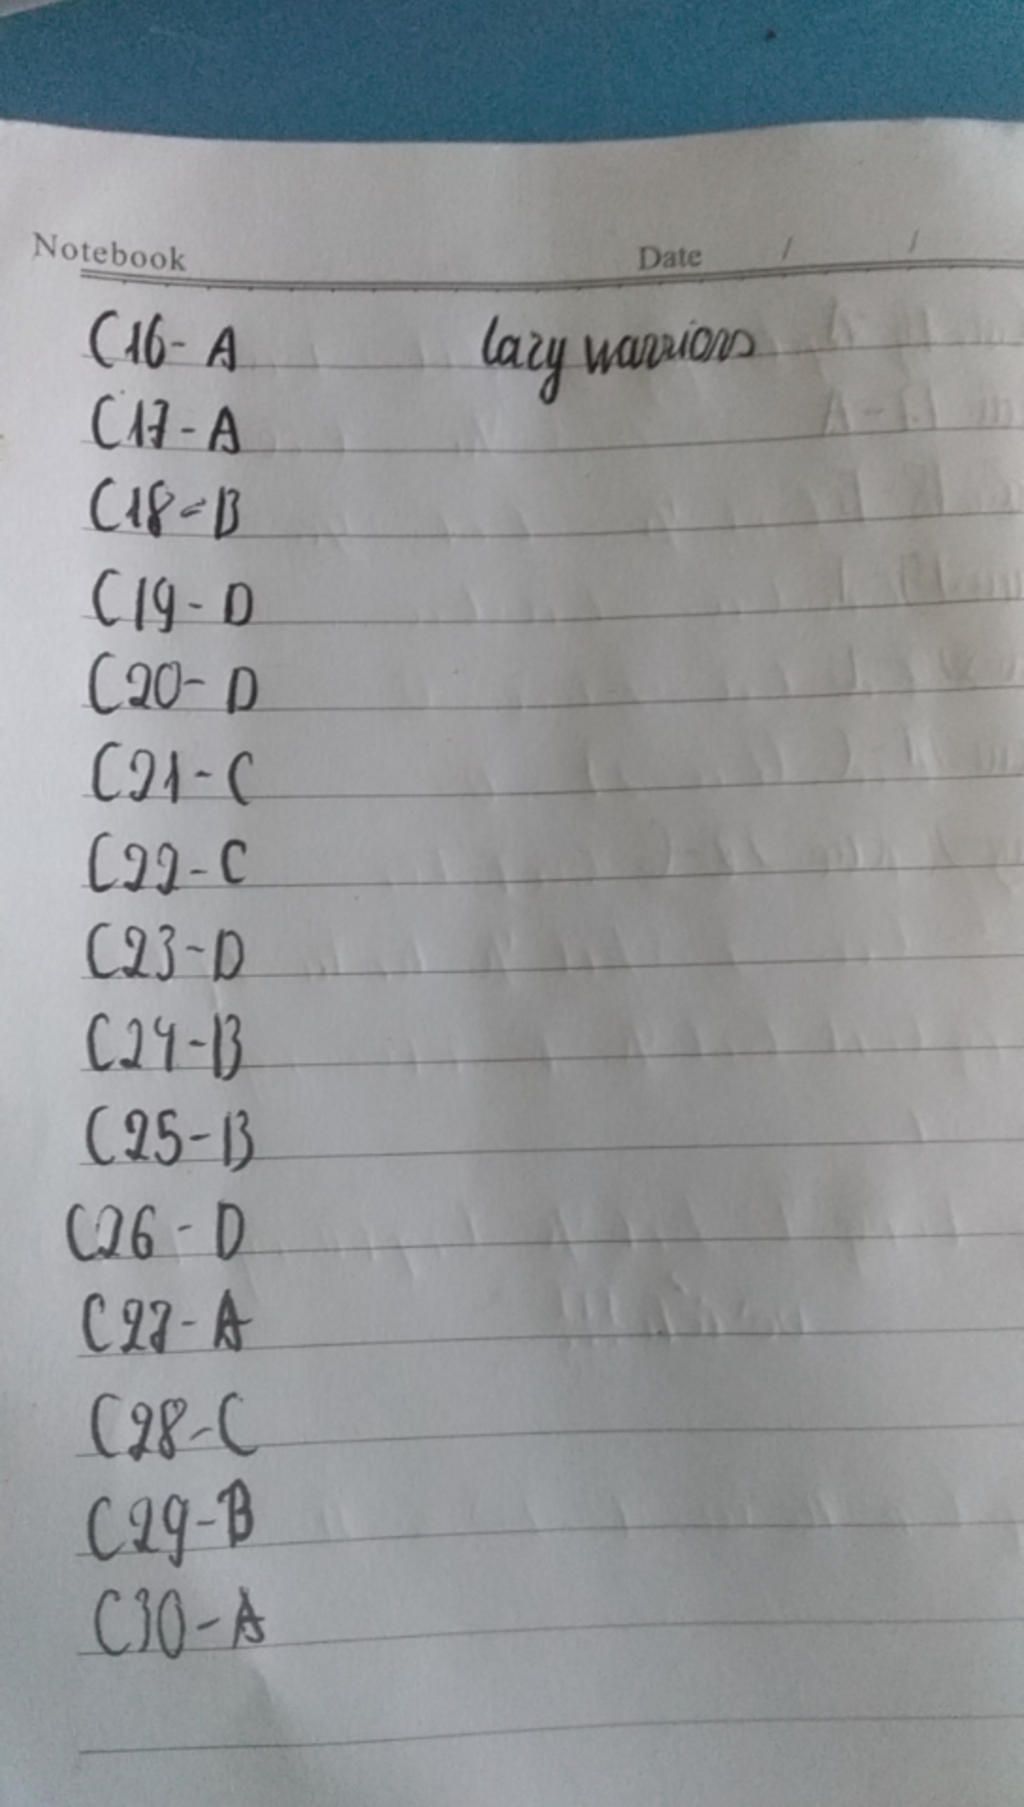 Notebook Date / /
C16- A lazy warriors
C17-A
C18-B
C19-D
C20-D
C21-C
C22-C
C23-D
C24-B
C25-B
C26-D
C27-A
C28-C
C29-B
C30-A